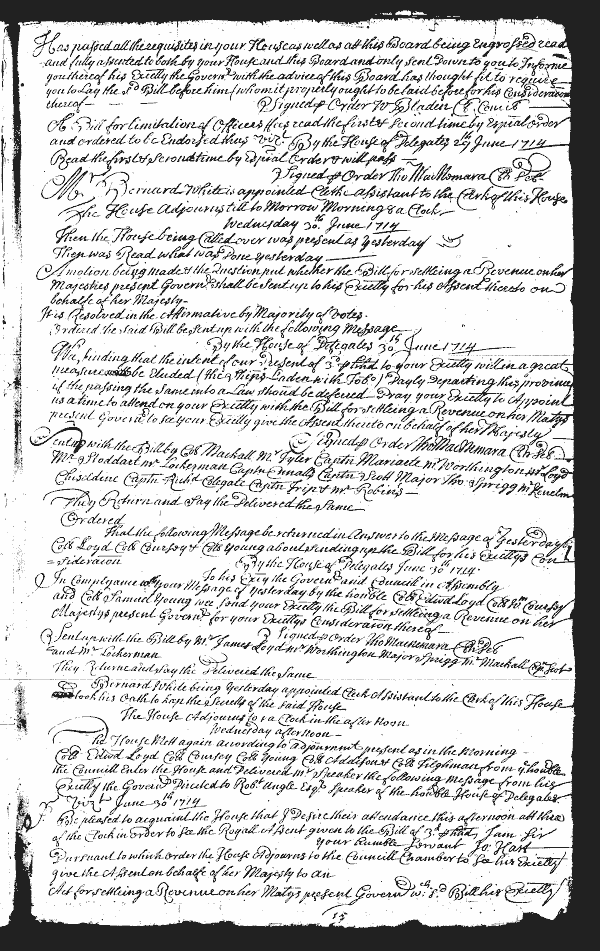 Has passed all the requisites in your House as well as att this Board being Engrossed read
and fully assented to both by your House and this Board and only sent Down to you to Informe
you thereof his Excllcy the Governr with the advice of this Board has thought fit to require
you to Lay the sd Bill before him (whom it properly ought to be laid before for his Consideration
thereof — Signed p Order W Bladen Cl Concil
A Bill for limitation of Officers ffees read the first & Second time by Espial Order
and ordered to be Endorsed thus vizt By the House of Delegates 29th June 1714
Read the first & second time by Espial Order & will pass
Signed p Order Tho Macknemara Cl Del
Mr Bernard White is appointed Clerk Assistant to the Clerk of this House
The House Adjourns till to Morrow Morning 8 a Clock
Wednesday 30th June 1714
Then the House being Called over was present as Yesterday
Then was Read what was Done yesterday
A motion being made & the Question put whether the Bill for settleing a Revenue on her
Majesties present Governr shall be Sent up to his Excllcy for his Assent thereto on
behalfe of her Majesty
It is Resolved in the Affirmative by Majority of Votes.
Ordered the said Bill be sent up with the following Message
By the House of Delegates 30th June 1714
We, finding that the intent of our present of 3d p hhd to your Excllcy will in a great
measure be Eluded (the Ships Laden with Tobo Dayly departing this province
if the passing the same into a Law should be deferred Pray your Excllcy to Appoint
us a time to attend on your Excllcy with the Bill for settleing a Revenue on her Matys
present Governr to see your Excllcy give the Assent thereto on behalf of her Majesty
Signed p Order Tho Macknemara Cl Del
Sent up with the Bill by Coll Mackall Mr Tyler Captn Mariartee Mr Worthington Mr Loyd
Mr Stoddart Mr Lockerman Captn Captn Scott Major Tho Sprigg Mr
Captn Richd Colegate Captn Tripe & Mr Robins
They Return and say the Delivered the same
Ordered
That the following Message be returned in Answer to the Message of Yesterday by
Coll Loyd Coll Coursey & Coll Young about sending up the Bill for his Excllcys Con
=sideracion By the House of Delegates June 30th 1714.
To his Excy the Governr and Councill in Assembly
In Complyance with your Message of Yesterday by the honble Coll Edwd Loyd Coll Wm Coursey
and Coll Samuel Young wee send your Excllcy the Bill for settleing a Revenue on her
Majestys present Governr for your Excllcys Consideration thereof
Signed p Order Tho Macknemara Cl Del
Sent up with the Bill by Mr James Loyd Mr Worthington Major Sprigg Mr Mackall Captn Scot
and Mr Lockerman
They Returne and say the Delivered the Same
Bernard White being Yesterday appointed Clerk Assistant to the Clerk of this House
took his Oath to keep the Secretts of the said House
The House Adjourns to 2 a Clock in the afternoon
Wednesday afternoon
The House Mett again according to Adjournmt present as in the Morning
Coll Edwd Loyd Coll Coursey Coll Young Coll Addison & Coll Tilghman from ye honble
the Councill Enter the House and Delivered Mr Speaker the following message from his
Excllcy the Governr Directed to Robt Ungle Esqr Speaker of the honble House of Delegates
Vizt June 30th 1714
Be pleased to acquaint the House that I desire their attendance this afternoon att three
of the Clock in order to See the Royall Assent given to the Bill of 3d p hhd I am Sir
Your humble Servant Jo Hart
Pursuant to which order the House Adjourns to the Councill Chamber to See his Excllcy
give the Assent on behalfe of her Majesty to An
Act for settleing a Revenue on her Matys present Governr wch sd Bill his Excllcy
15